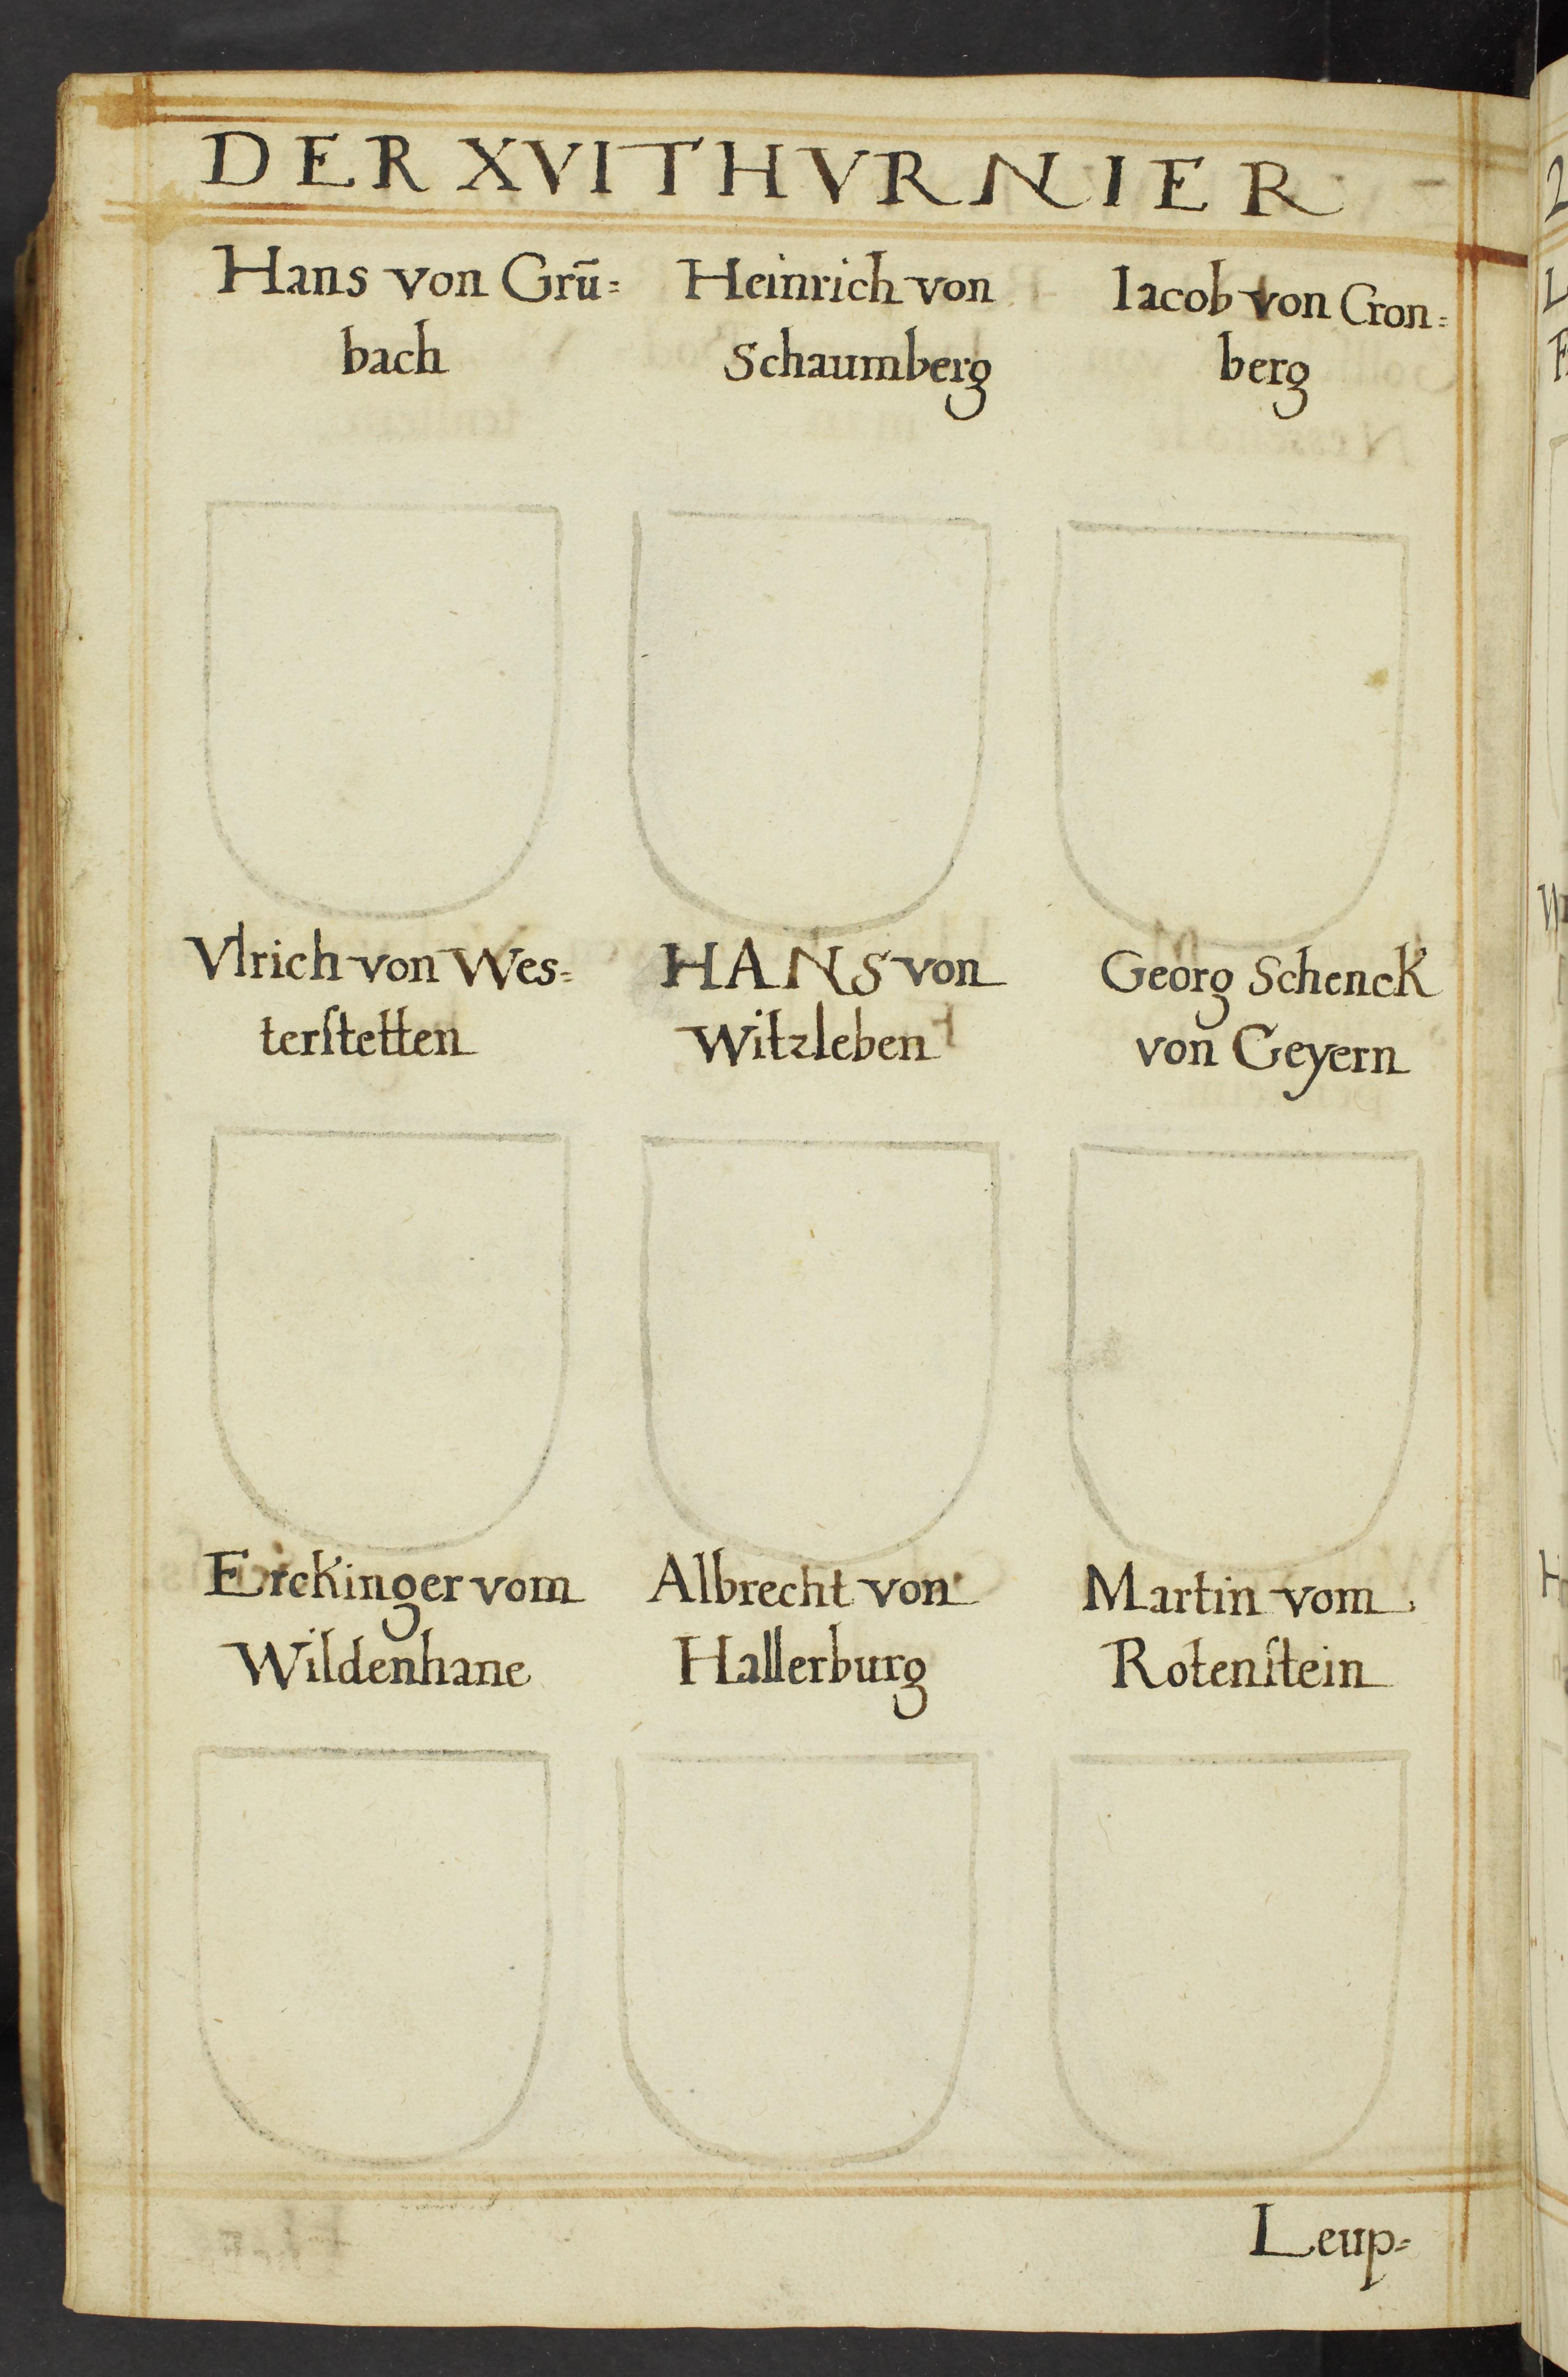 DER XVI THVRNIER
Hans von Grū=
bach
Heinrich von
Schaumberg
Iacob von Cron=
berg
Vlrich von Wes=
terſtetten
HANS von
Witzleben
Georg Schenck
von Geyern
Erckinger vom
Wildenhane
Albrecht von
Hallerburg
Martin vom
Rotenſtein
Leup=